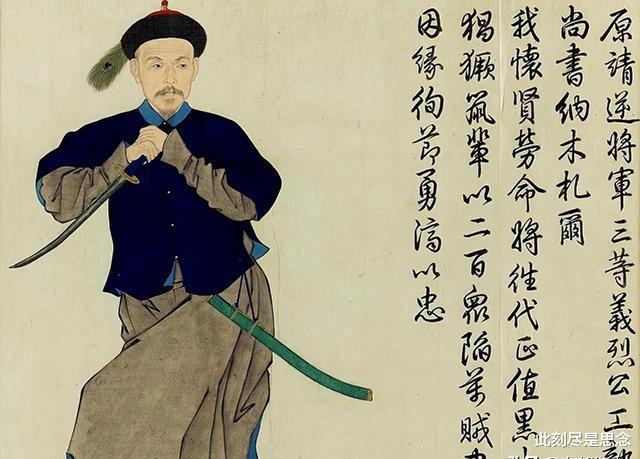 原靖逆將軍三等義烈公工部
尚書納木札爾
我懷賢勞命將往代正值黑
猖獗鼠輩以二百眾陷萬賊
因緣徇節勇濟以忠
此刻尽是思念